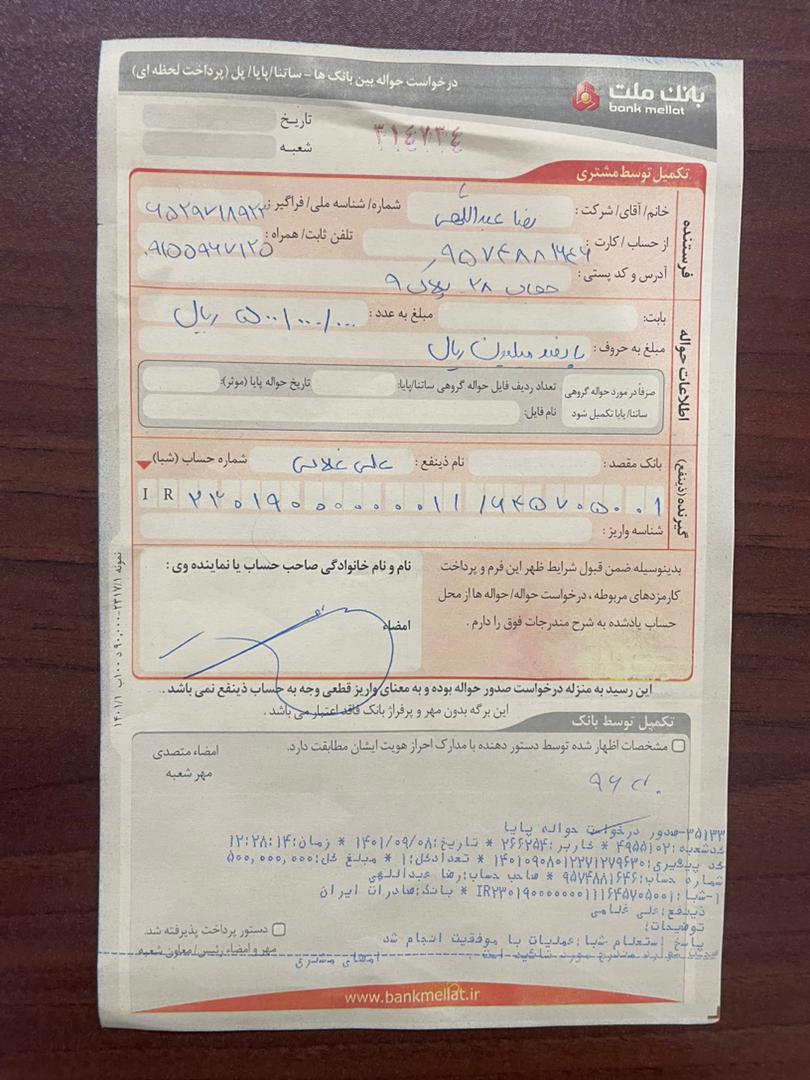 درخواست حواله بین بانک ها - ساتنا/پایا/پل (پرداخت لحظه ای)
بانک ملت
bank mellat
تاریخ
شعبه
۳۱۴۷۳۴
تکمیل توسط مشتری
فرستنده
خانم/آقای/شرکت: رضا عبداللهی شماره/شناسه ملی/فراگیر
از حساب/کارت: ۹۵۷۴۸۸۱۶۴۶ تلفن ثابت/همراه: ۰۹۱۵۵۹۶۷۱۲۵
آدرس و کد پستی: ۲۸ پلاک ۹
اطلاعات حواله
بابت: مبلغ به عدد: ۵۰۰/۰۰۰/۰۰۰ ریال
مبلغ به حروف: پانصد میلیون ریال
صرفاً در مورد حواله گروهی ساتنا/پایا تکمیل شود
تعداد ردیف فایل حواله گروهی ساتنا/پایا: تاریخ حواله پایا (موثر):
نام فایل:
گیرنده (ذینفع)
بانک مقصد: نام ذینفع: علی غلامی شماره حساب (شبا)
IR ۲۳۰۱۹۰۰۰۰۰۰۰۱۱۱۶۴۵۷۰۵۰۰۱
شناسه واریز:
بدینوسیله ضمن قبول شرایط ظهر این فرم و پرداخت
کارمزدهای مربوطه، درخواست حواله/حواله ها از محل
حساب یادشده به شرح مندرجات فوق را دارم.
نام و نام خانوادگی صاحب حساب یا نماینده وی:
امضاء
این رسید به منزله درخواست صدور حواله بوده و به معنای واریز قطعی وجه به حساب ذینفع نمی باشد.
این برگه بدون مهر و پرفراژ بانک فاقد اعتبار می باشد.
تکمیل توسط بانک
مشخصات اظهار شده توسط دستور دهنده با مدارک احراز هویت ایشان مطابقت دارد.
امضاء متصدی
مهر شعبه
۳۵۱۳۳-صدور درخواست حواله پایا
کدشعبه:۴۹۵۵۱۰۲ * کاربر:۲۶۶۲۵۴ * تاریخ:۱۴۰۱/۰۹/۰۸ * زمان:۱۲:۲۸:۱۴
کد پیگیری:۱۴۰۱۰۹۰۸۰۱۲۲۷۱۲۷۹۶۳۰ * تعدادکل:۱ * مبلغ کل:۵۰۰,۰۰۰,۰۰۰
شماره حساب:۹۵۷۴۸۸۱۶۴۶ * صاحب حساب:رضا عبداللهی
۱-شبا:IR۲۳۰۱۹۰۰۰۰۰۰۰۱۱۱۶۴۵۷۰۵۰۰۱ * بانک:صادرات ایران
ذینفع:علی غلامی
توضیحات:
پاسخ استعلام شبا:عملیات با موفقیت انجام شد
امضای مشتری
دستور پرداخت پذیرفته شد.
مهر و امضاء رئیس/معاون شعبه
www.bankmellat.ir